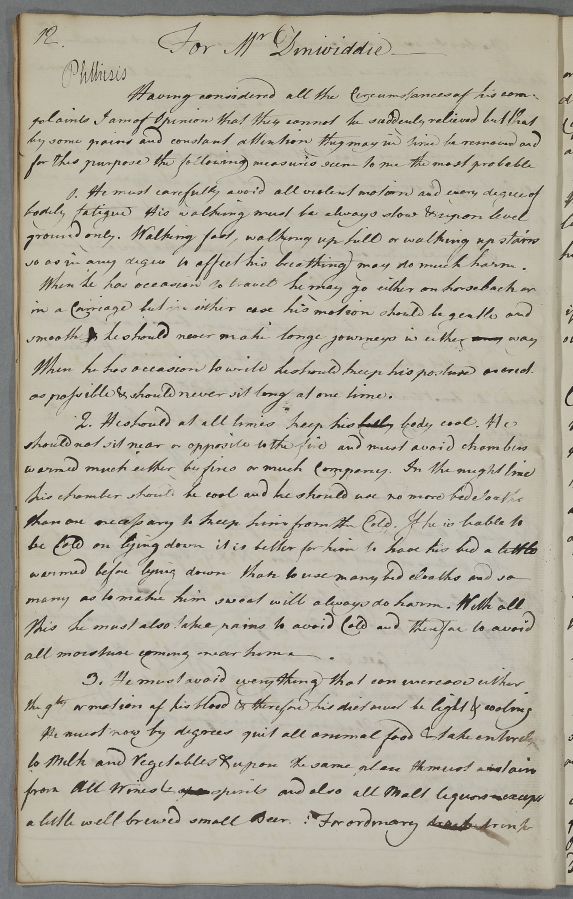 12.
For Mr Dinwiddie
Phthisis
Having considered all the Circumstances of his com-
-plaints I am of Opinion that they cannot be suddenly relieved but that
by some pains and constant attention they may in time be removed and
for this purpose the following measures seem to me the most probable
1. He must carefully avoid all violent motion and every degree of
bodily fatigue His walking must be always slow & upon level
ground only. Walking fast, walking up hill or walking up stairs
so as in any degree to affect his breathing may do much harm.
When he has occasion to travel he may go either on horseback or
in a Carriage but in either case his motion should be gentle and
smooth & he should never make longe journeys in either way
When he has occasion to write he should keep his posture as erect
as possible & should never sit long at one time.
2. He should at all times keep his body cool. He
should not sit near or opposite to the fire and must avoid chambers
warmed much either by fires or much Company. In the night time
his chamber should be cool and he should use no more bedcloaths
than are necessary to keep him from the Cold. If he is liable to
be Cold on lying down it is better for him to have his bed a little
warmed before lying down than to use many bed cloaths and so
many as to make him sweat will always do harm. With all
this he must also take pains to avoid Cold and therefore to avoid
all moisture coming near him
3. He must avoid every thing that can increase either
the qty or motion of his blood & therefore his diet must be light & cooling
He must now by degrees quit all animal food & take entirely
to Milk and Vegetables & upon the same plan he must abstain
from All Wines & spirits and also all Malt liquors except
a little well brewed small Beer. For ordinary drink